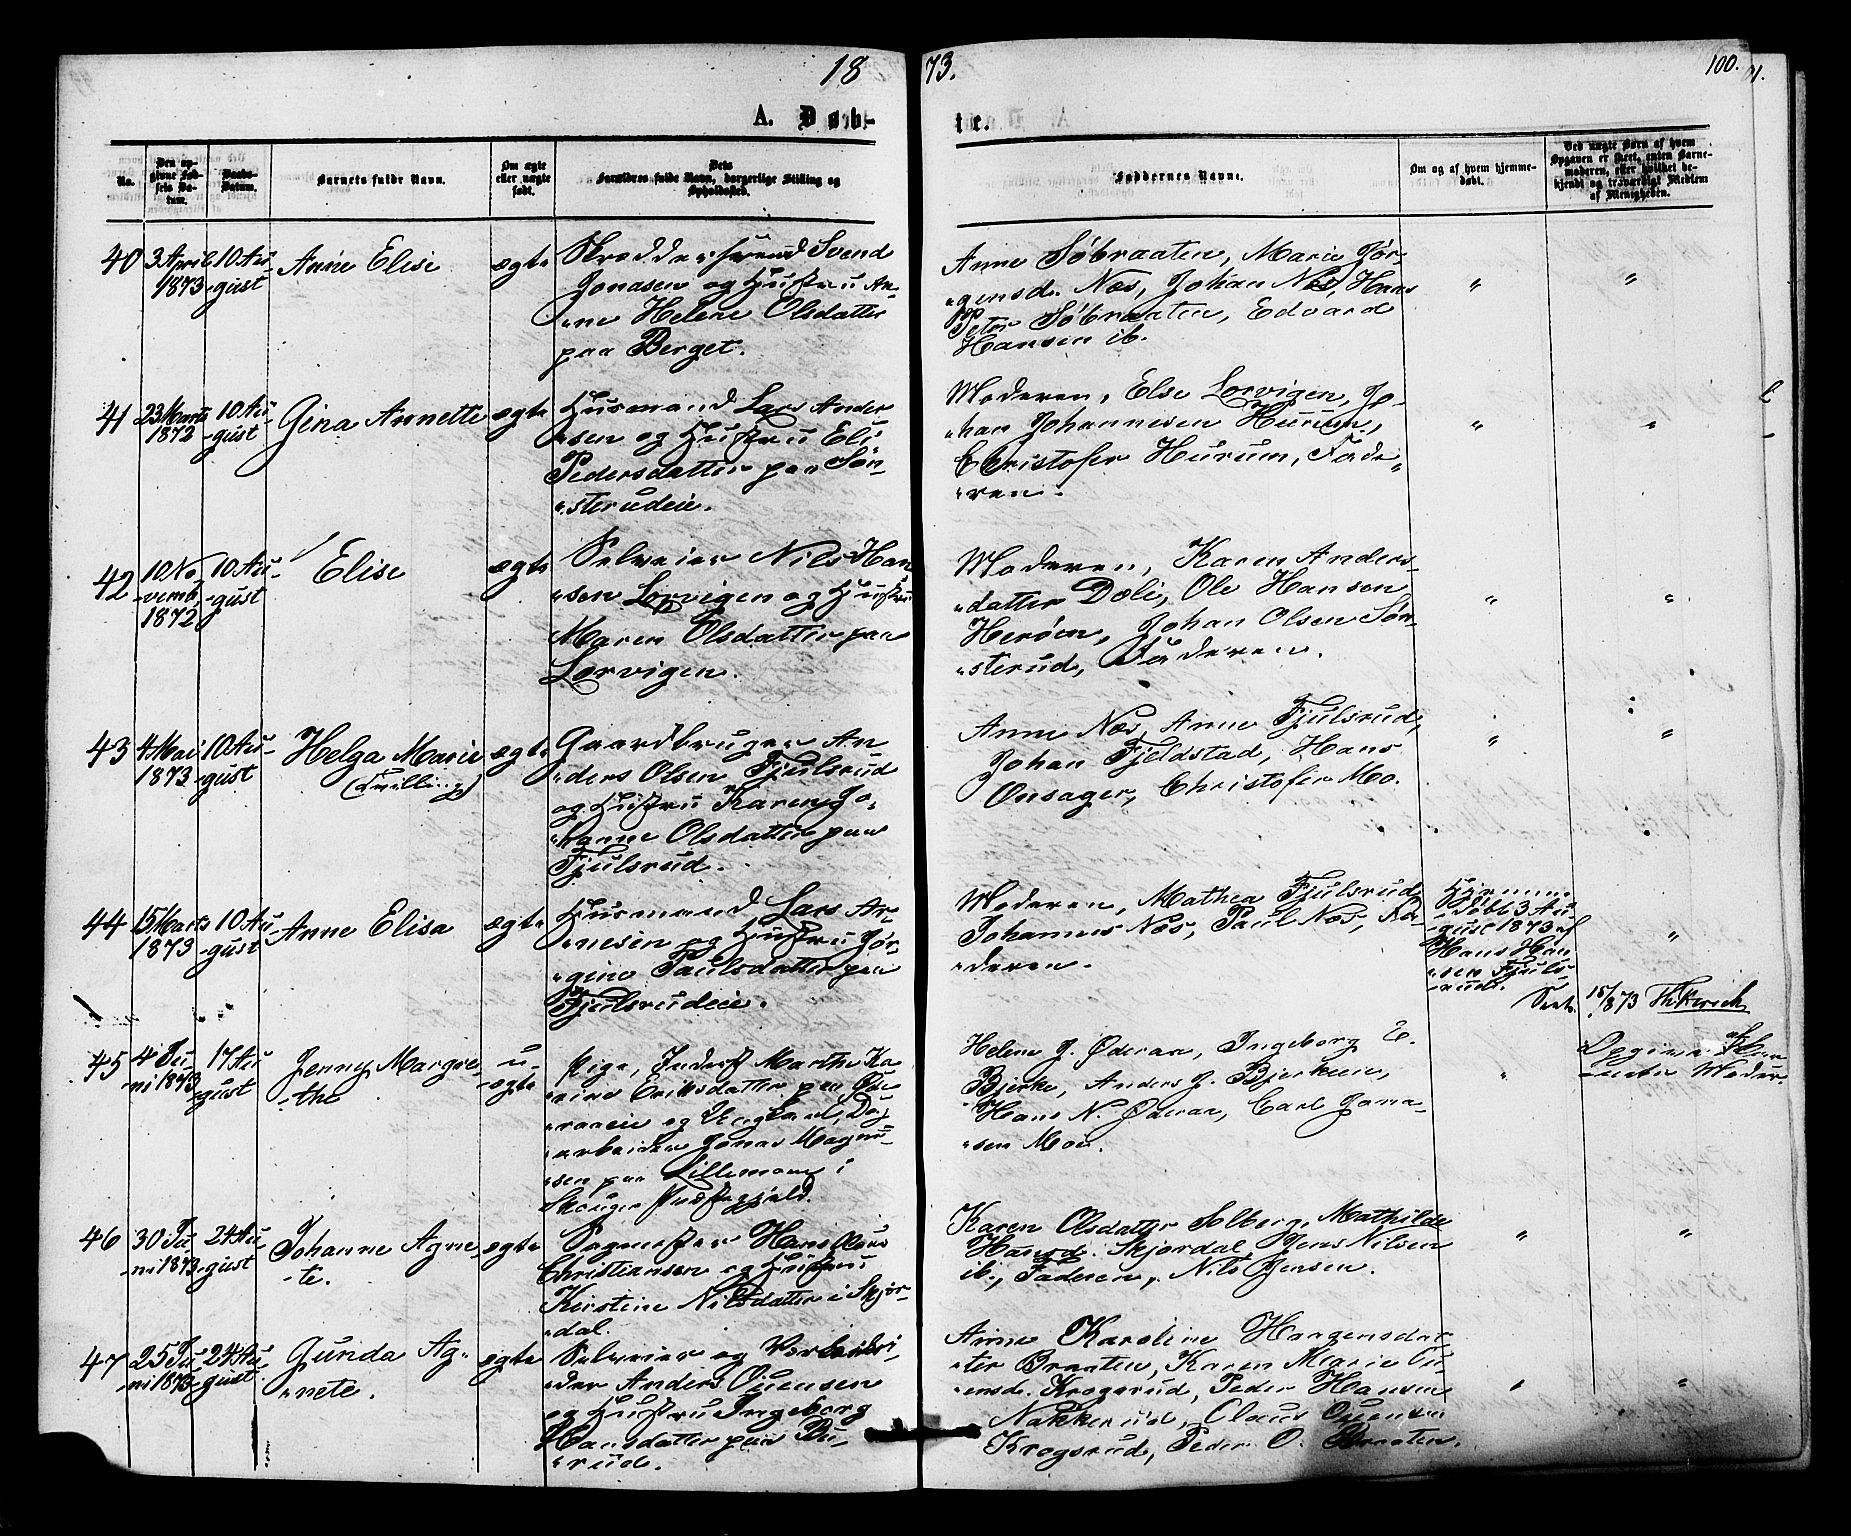 1873.
100.
A. Døbte.
No.
Den opgivne Fødsels Datum.
Daabs-Datum.
Barnets fulde Navn.
Om ægte eller uægte født.
Dets Forældres fulde Navn, borgerlige Stilling og Opholdssted.
Faddernes Navne.
Om og af hvem hjemmedøbt.
Ved uægte Børn af hvem Opgaven er skeet, enten Barnemoderen, eller hvilket bekjendt og troværdigt Medlem af Menigheden.
40
3 April
1873
10 Au-
-gust
Anne Elise
ægte
Skræddersvend Svend
Jonasen og Hustru An-
-ne Helene Olsdatter
paa Berget.
Anne Søbraaten, Marie Jør-
-gensd. Næs, Johan Næs, Hans
Peter Søbraaten, Edvard
Hansen ib.
"
"
41
23 Marts
1872
10 Au-
-gust
Gina Annette
ægte
Husmand Lars Ander
-sen og Hustru Eli
Pedersdatter paa Søn-
-sterudeie.
Moderen, Else Lorvigen, Jo-
-han Johannesen Hurum,
Christofer Hurum, Fade-
-ren.
"
"
42
10 No-
-vemb.
1872
10 Au-
-gust
Elise
ægte
Selveier Nils Han
-sen Lorvigen og Hustru
Maren Olsdatter paa
Lorvigen.
Moderen, Karen Anders-
-datter Dæli, Ole Hansen
Herøen, Johan Olsen Søn-
-sterud, Faderen.
"
"
43
4 Mai
1873
10 Au-
-gust
Helga Marie
(Tvilling)
ægte
Gaardbruger An
-ders Olsen Fjulsrud
og Hustru Karen Jo-
-hanne Olsdatter paa
Fjulsrud.
Anne Næs, Anne Fjulsrud,
Johan Fjeldstad, Hans
Onsager, Christofer Mo.
"
"
44
15 Marts
1873
10 Au-
-gust
Anne Elisa
ægte
Husmand Lars Ar-
-nesen og Hustru Jør-
-gine Paulsdatter paa
Fjulsrudeie.
Moderen, Mathea Fjulsrud
Johannes Næs, Paul Næs, Fa-
-deren.
Hjemme-
-døbt 3 Au-
-gust 1873 af
Hans Han-
-sen Fjuls-
-rud.
"
45
4 Ju-
-ni 1873
17 Au-
-gust
Jenny Margre-
-the
u-
-ægte
Pige, Inderst Marthe Ka-
-rine Eriksdatter paa Øde-
-raaeie og Ungkarl, Dag-
-arbeider Jonas Magnu-
-sen paa Lillemoen i
Skouger Præstegjeld.
Helene J. Øderaa, Ingeborg E.
Bjerke, Anders J. Bjerkeen,
Hans N. Øderaa, Carl Jona-
-sen Moe.
"
46
30 Ju-
-ni 1873
24 Au-
-gust
Johanne Agne
-te.
ægte
Sagmester Hans Olaus
Christiansen og Hustru
Kirstine Nilsdatter i Skjør-
-dal.
Karen Olsdatter Solberg, Mathilde
Hansd. Skjørdal, Jens Nilsen
ib., Faderen, Nils Jensen.
"
"
47
25 Ju-
-ni 1873
24 Au-
-gust
Gunda Ag-
-nete.
ægte
Selveier og
Anders Ouensen
og Hustru Ingeborg
Hansdatter paa Bu-
-rud.
Anne Karoline Haagensdat-
-ter Braaten, Karen Marie Ou-
-ensd. Krogsrud, Peder Hansen
Nakkerud, Olaus Ouensen
Krogsrud, Peder O. Braaten.
"
"